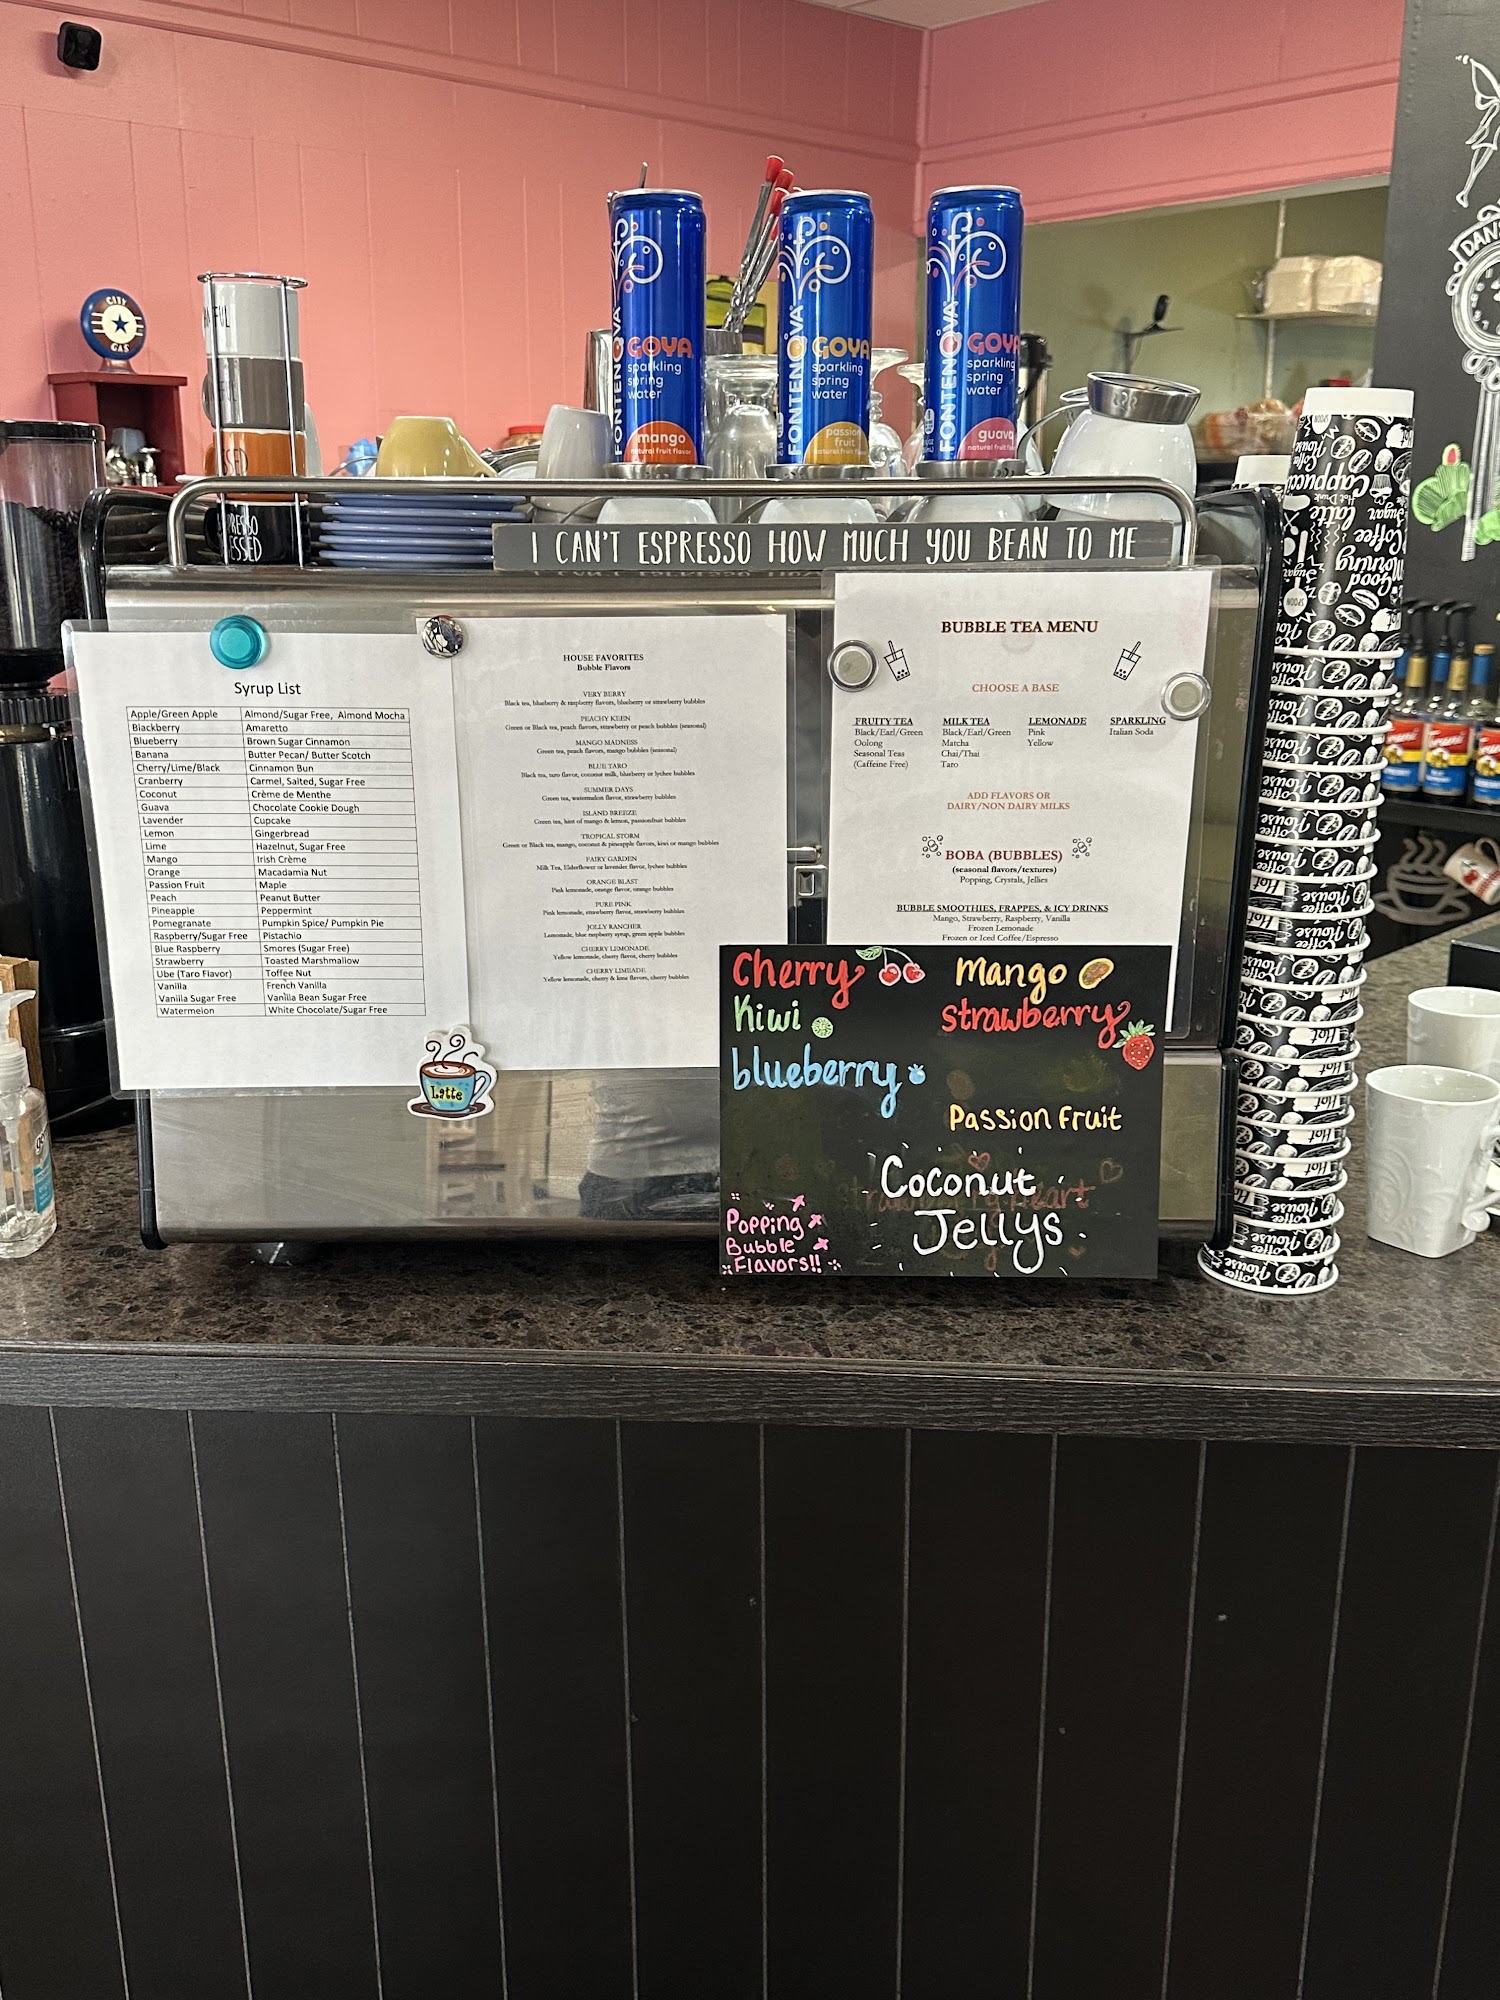 CITY
GAS
FONTENOVA
GOYA
sparkling
spring
water
mango
natural fruit flavor
FONTENOVA
GOYA
sparkling
spring
water
passion
fruit
natural fruit
FONTENOVA
GOYA
sparkling
spring
water
guava
natural fruit
I CAN'T ESPRESSO HOW MUCH YOU BEAN TO ME
Syrup List
Apple/Green Apple Almond/Sugar Free, Almond Mocha
Blackberry Amaretto
Blueberry Brown Sugar Cinnamon
Banana Butter Pecan/ Butter Scotch
Cherry/Lime/Black Cinnamon Bun
Cranberry Carmel, Salted, Sugar Free
Coconut Crème de Menthe
Guava Chocolate Cookie Dough
Lavender Cupcake
Lemon Gingerbread
Lime Hazelnut, Sugar Free
Mango Irish Crème
Orange Macadamia Nut
Passion Fruit Maple
Peach Peanut Butter
Pineapple Peppermint
Pomegranate Pumpkin Spice/ Pumpkin Pie
Raspberry/Sugar Free Pistachio
Blue Raspberry Smores (Sugar Free)
Strawberry Toasted Marshmallow
Ube (Taro Flavor) Toffee Nut
Vanilla French Vanilla
Vanilla Sugar Free Vanilla Bean Sugar Free
Watermelon White Chocolate/Sugar Free
Latte
HOUSE FAVORITES
Bubble Flavors
VERY BERRY
Black tea, blueberry & raspberry flavors, blueberry or strawberry bubbles
PEACHY KEEN
Green or Black tea, peach flavors, strawberry or peach bubbles (seasonal)
MANGO MADNESS
Green tea, peach flavors, mango bubbles (seasonal)
BLUE TARO
Black tea, taro flavor, coconut milk, blueberry or lychee bubbles
SUMMER DAYS
Green tea, watermelon flavor, strawberry bubbles
ISLAND BREEZE
Green tea, hint of mango & lemon, passionfruit bubbles
TROPICAL STORM
Green or Black tea, mango, coconut & pineapple flavors, kiwi or mango bubbles
FAIRY GARDEN
Milk Tea, Elderflower or lavender flavor, lychee bubbles
ORANGE BLAST
Pink lemonade, orange flavor, orange bubbles
PURE PINK
Pink lemonade, strawberry flavor, strawberry bubbles
JOLLY RANCHER
Lemonade, blue raspberry syrup, green apple bubbles
CHERRY LEMONADE
Yellow lemonade, cherry flavor, cherry bubbles
CHERRY LIMEADE
Yellow lemonade, cherry & lime flavors, cherry bubbles
BUBBLE TEA MENU
CHOOSE A BASE
FRUITY TEA MILK TEA LEMONADE SPARKLING
Black/Earl/Green Black/Earl/Green Pink Italian Soda
Oolong Matcha Yellow
Seasonal Teas Chai/Thai
(Caffeine Free) Taro
ADD FLAVORS OR
DAIRY/NON DAIRY MILKS
BOBA (BUBBLES)
(seasonal flavors/textures)
Popping, Crystals, Jellies
BUBBLE SMOOTHIES, FRAPPES, & ICY DRINKS
Mango, Strawberry, Raspberry, Vanilla
Frozen Lemonade
Frozen or Iced Coffee/Espresso
Cherry Mango
Kiwi strawberry
blueberry
Passion Fruit
Coconut
Jellys
Popping
Bubble
Flavors!!
Cappuccino
latte
Sugar
Coffee
Good
Morning
Torani